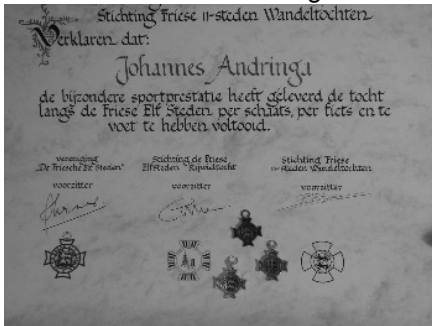 Stichting Friese 11-steden Wandeltochten
Verklaren dat:
Johannes Andringa
de bijzondere sportprestatie heeft geleverd de tocht
langs de Friese Elf Steden per schaats, per fiets en te
voet te hebben voltooid.
vereniging
"De Friesche Elf Steden"
voorzitter
Stichting de Friese
Elf Steden Rijwieltocht
voorzitter
Stichting Friese
11-steden Wandeltochten
voorzitter